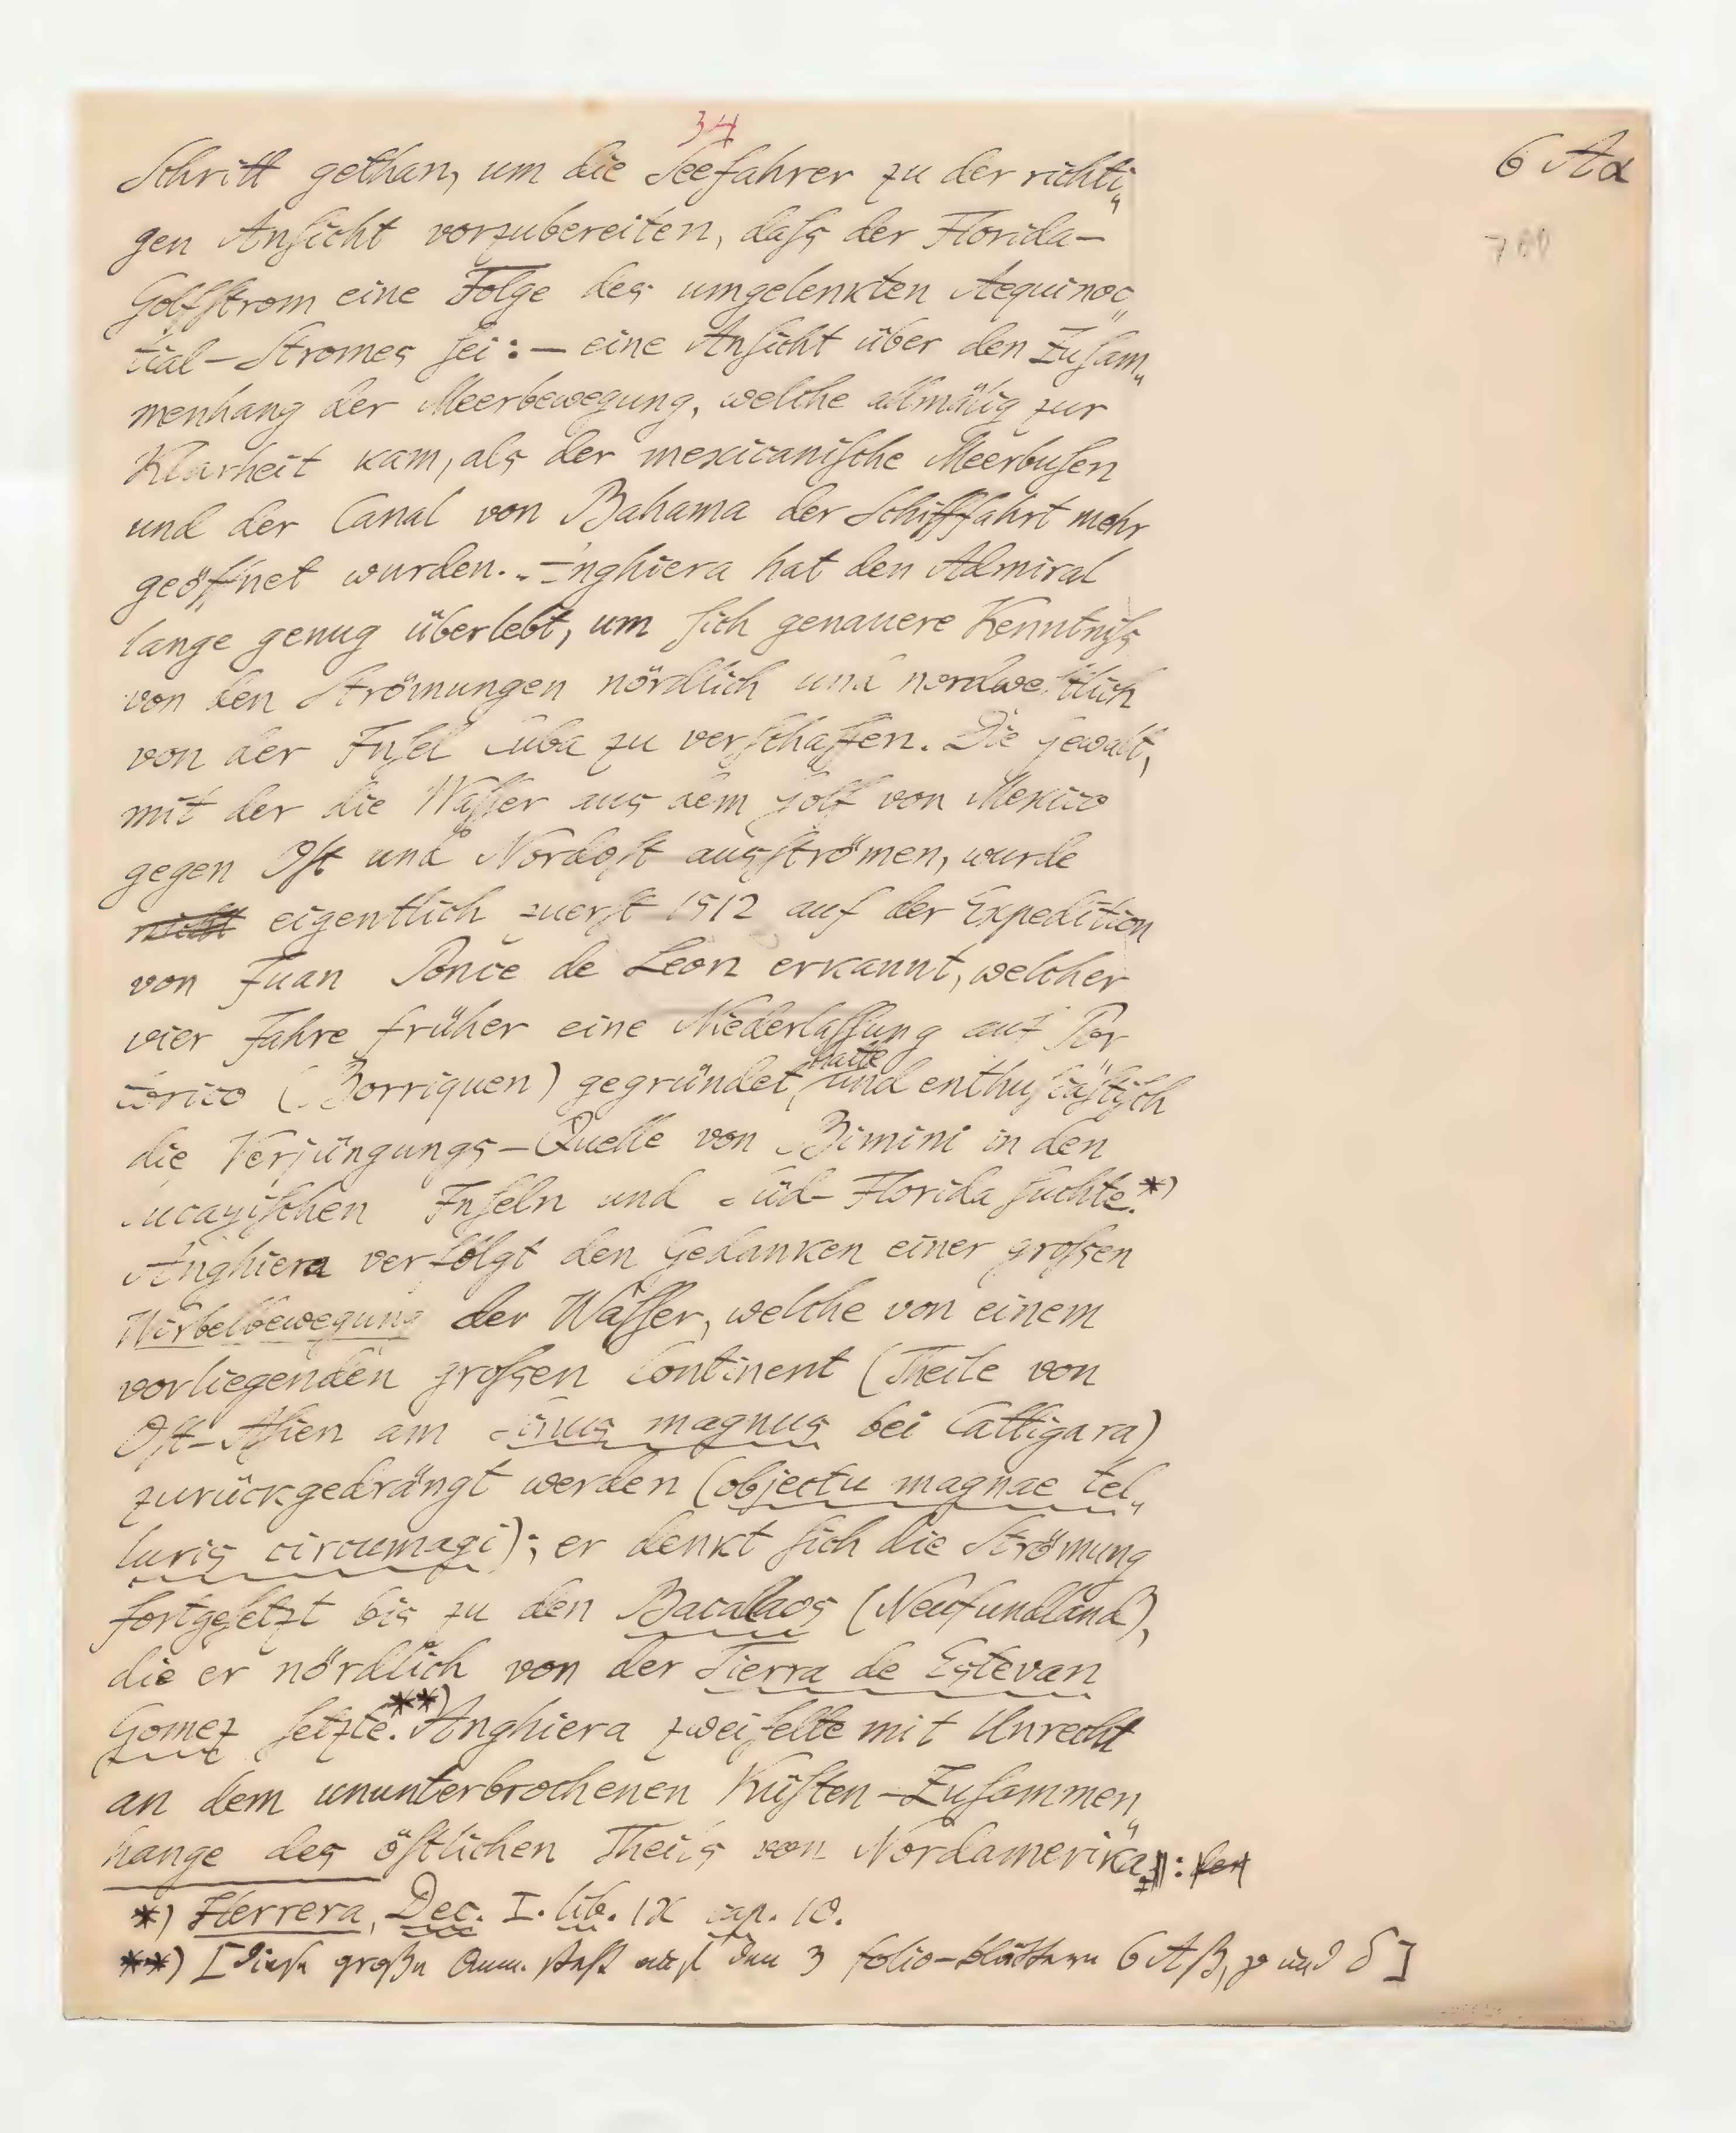 34
6 Aα
Schritt gethan, um die Seefahrer zu der richti„
gen Anſicht vorzubereiten, daſs der Florida-
Golfſtrom eine Folge des umgelenkten Aequinoc„
tial-Stromes ſei: — eine Anſicht über den Zuſam„
menhang der Meerbewegung, welche allmälig zur
Klarheit kam, als der mexicaniſche Meerbuſen
und der Canal von Bahama der Schifffahrt mehr
geöffnet wurden. Anghiera hat den Admiral
lange genug überlebt, um ſich genauere Kenntniſs
von den Strömungen nördlich und nordweſtlich
von der Inſel Cuba zu verſchaffen. Die Gewalt,
mit der die Waſſer aus dem Golf von Mexico
gegen Oſt und Nordoſt ausſtrömen, wurde
nicht eigentlich zuerſt 1512 auf der Expedition
von Juan Ponce de Leon erkannt, welcher
vier Jahre früher eine Niederlaſſung auf Por
torico (Borriquen) gegründet hatte, und enthuſiaſtiſch
die Verjüngungs-Quelle von Bimini in den
Lucayiſchen Inſeln und Süd-Florida ſuchte.*)
Anghiera verfolgt den Gedanken einer groſsen
Wirbelbewegung der Waſſer, welche von einem
vorliegenden groſsen Continent (Theile von
Oſt-Aſien am Sinus magnus bei Cattigara)
zurückgedrängt werden (objectu magnae tel„
luris circumagi); er denkt ſich die Strömung
fortgeſetzt bis zu den Bacallaos (Neufundland),
die er nördlich von der Tierra de Estevan
Gomez ſetzte.**) Anghiera zweifelte mit Unrecht
an dem ununterbrochenen Küſten-Zuſammen„
hange des öſtlichen Theils von Nordamerika:
*) Herrera, Dec. I. lib. IX cap. 10.
**) [Dieſe große Anm. ſteht auf den 3 folio-blättern 6 Aβ, γ und δ]